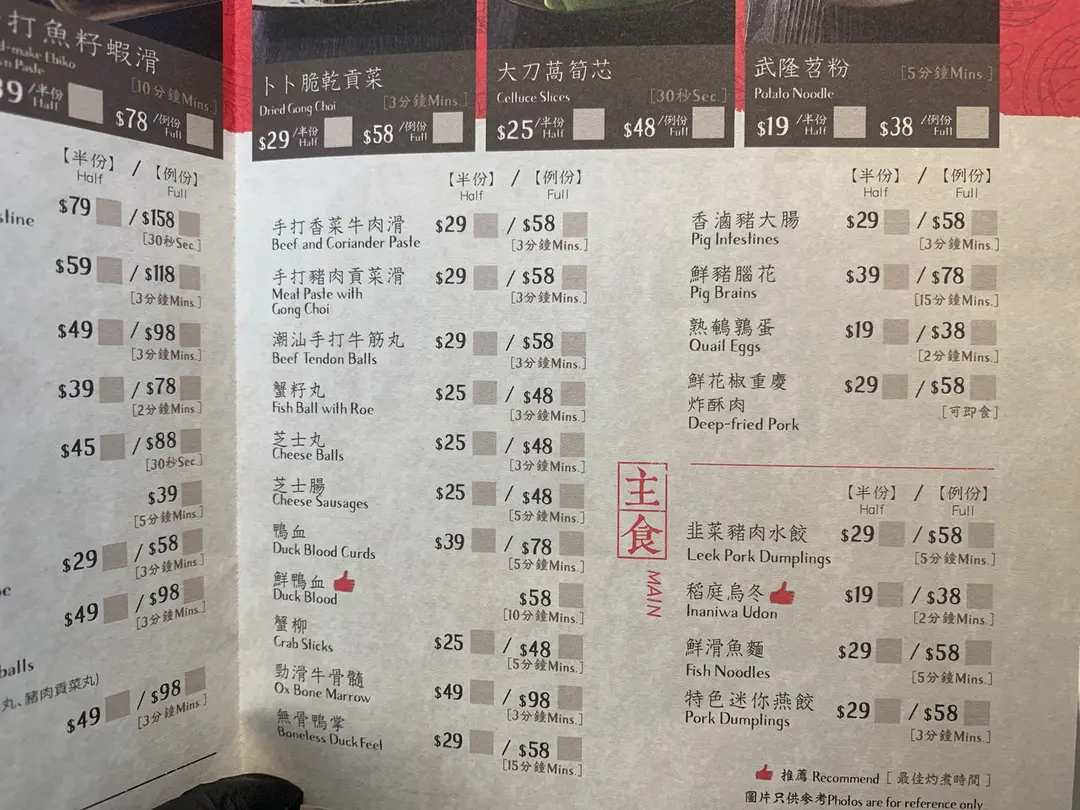 打魚籽蝦滑
d-make Ebiko
wn Paste
[10分鐘Mins.]
39 /半份 Half
$78 /例份 Full
【半份】 / 【例份】
Half Full
sline
$79 / $158
[30秒Sec.]
$59 / $118
[3分鐘Mins.]
$49 / $98
[3分鐘Mins.]
$39 / $78
[2分鐘Mins.]
$45 / $88
[30秒Sec.]
$39
[5分鐘Mins.]
$29 / $58
[3分鐘Mins.]
e
$49 / $98
[3分鐘Mins.]
balls
丸、豬肉貢菜丸)
$49 / $98
[3分鐘Mins.]
卜卜脆乾貢菜
Dried Gong Choi [3分鐘Mins.]
$29 /半份 Half $58 /例份 Full
大刀萵筍芯
Celluce Slices [30秒Sec.]
$25 /半份 Half $48 /例份 Full
【半份】 / 【例份】
Half Full
手打香菜牛肉滑 $29 / $58
Beef and Coriander Paste [3分鐘Mins.]
手打豬肉貢菜滑 $29 / $58
Meat Paste with [3分鐘Mins.]
Gong Choi
潮汕手打牛筋丸 $29 / $58
Beef Tendon Balls [3分鐘Mins.]
蟹籽丸 $25 / $48
Fish Ball with Roe [3分鐘Mins.]
芝士丸 $25 / $48
Cheese Balls [3分鐘Mins.]
芝士腸 $25 / $48
Cheese Sausages [5分鐘Mins.]
鴨血 $39 / $78
Duck Blood Curds [5分鐘Mins.]
鮮鴨血 $58
Duck Blood [10分鐘Mins.]
蟹柳 $25 / $48
Crab Sticks [5分鐘Mins.]
勁滑牛骨髓 $49 / $98
Ox Bone Marrow [3分鐘Mins.]
無骨鴨掌 $29 / $58
Boneless Duck Feet [15分鐘Mins.]
武隆苕粉 [5分鐘Mins.]
Potato Noodle
$19 /半份 Half $38 /例份 Full
【半份】 / 【例份】
Half Full
香滷豬大腸 $29 / $58
Pig Intestines [3分鐘Mins.]
鮮豬腦花 $39 / $78
Pig Brains [15分鐘Mins.]
熟鵪鶉蛋 $19 / $38
Quail Eggs [2分鐘Mins.]
鮮花椒重慶 $29 / $58
炸酥肉 [可即食]
Deep-fried Pork
主食
MAIN
【半份】 / 【例份】
Half Full
韭菜豬肉水餃 $29 / $58
Leek Pork Dumplings [5分鐘Mins.]
稻庭烏冬 $19 / $38
Inaniwa Udon [2分鐘Mins.]
鮮滑魚麵 $29 / $58
Fish Noodles [5分鐘Mins.]
特色迷你燕餃 $29 / $58
Pork Dumplings [3分鐘Mins.]
推薦 Recommend [ 最佳灼煮時間 ]
圖片只供參考Photos are for reference only